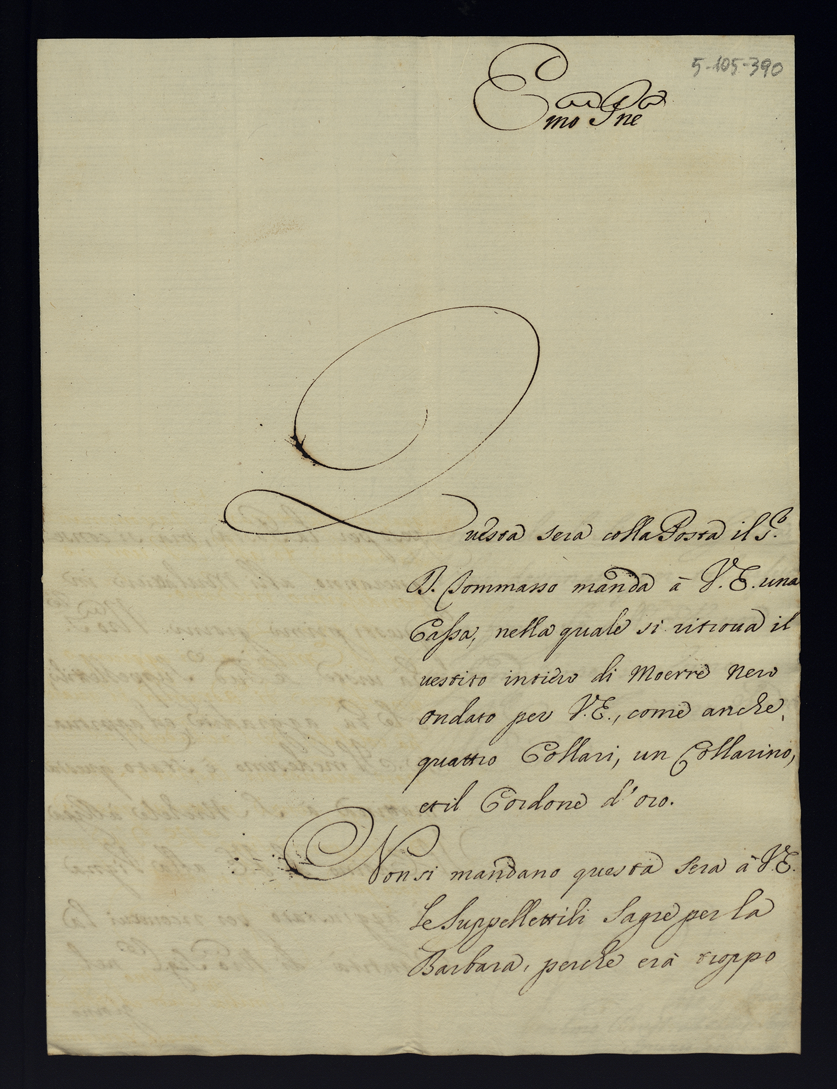 5-105-390
Emo Pne
Questa sera colla Posta il S.r
D. Tommaso manda à V.E. una
Cassa, nella quale si ritroua il
uestito intiero di Moerre nero
ondato per V.E., come anche
quattro Collari, un Collarino,
et il Cordone d'oro.
Non si mandano questa sera à V.E.
le Suppellettili Sagre per la
Barbara, perche era troppo